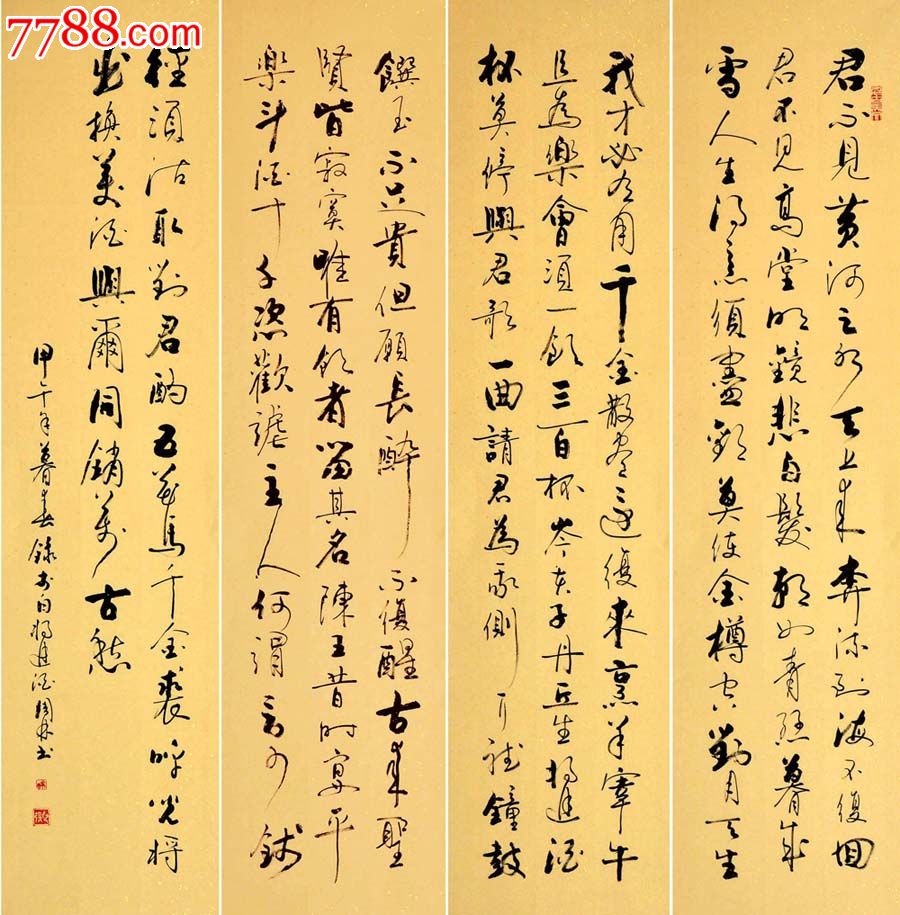 7788.com
君不見黄河之水天上来奔流到海不復回
君不見高堂明鏡悲白髮朝如青絲暮成
雪人生得意須盡歡莫使金樽空對月天生
我才必有用千金散盡還復來烹羊宰牛
且為樂會須一飲三百杯岑夫子丹丘生将進酒
杯莫停與君歌一曲請君為我側耳聽鐘鼓
饌玉不足貴但願長醉不復醒古来聖
賢皆寂寞唯有飲者留其名陳王昔時宴平
樂斗酒十千恣歡謔主人何謂言少錢
徑須沽取對君酌五花馬千金裘呼兒将
出換美酒與爾同銷萬古愁
甲午年暮春錄李白将進酒